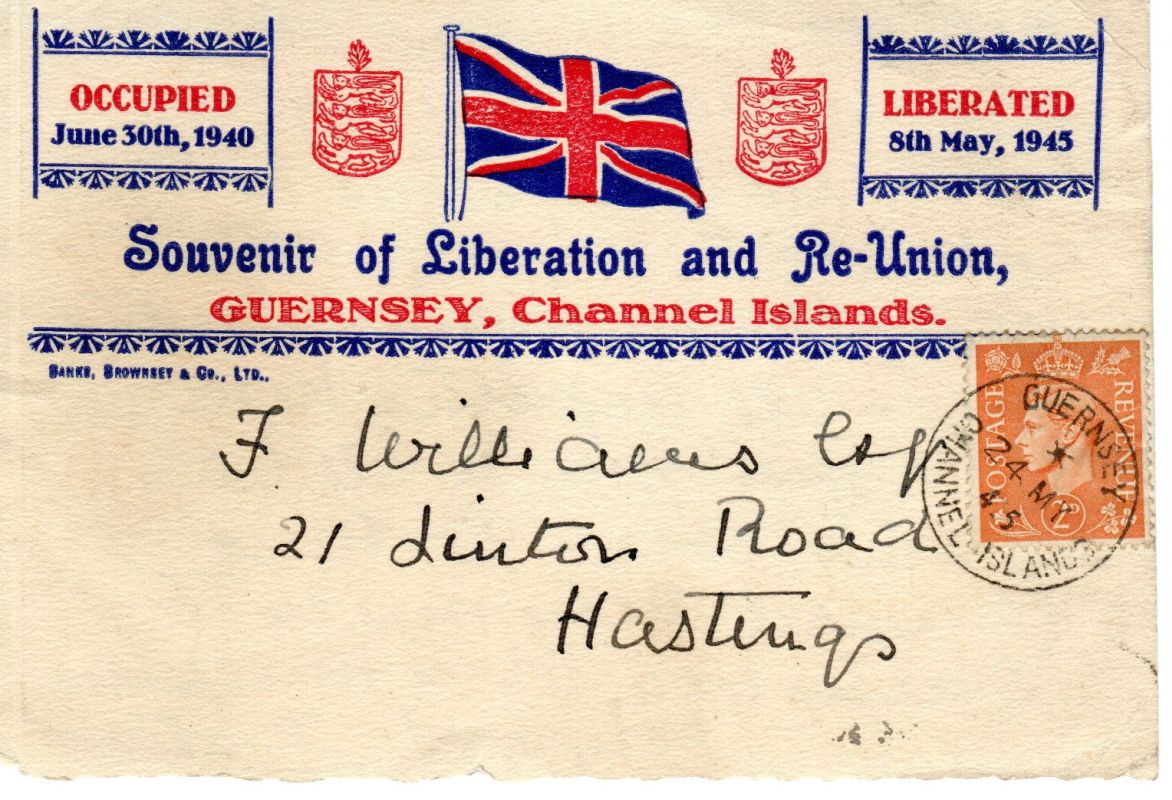 OCCUPIED
June 30th, 1940
LIBERATED
8th May, 1945
Souvenir of Liberation and Re-Union,
GUERNSEY, Channel Islands.
BANKS, BROWNSEY & CO., LTD.,
F Williams Esq
21 Linton Road
Hastings
POSTAGE
REVENUE
2D
GUERNSEY
24 MY
45
CHANNEL ISLANDS